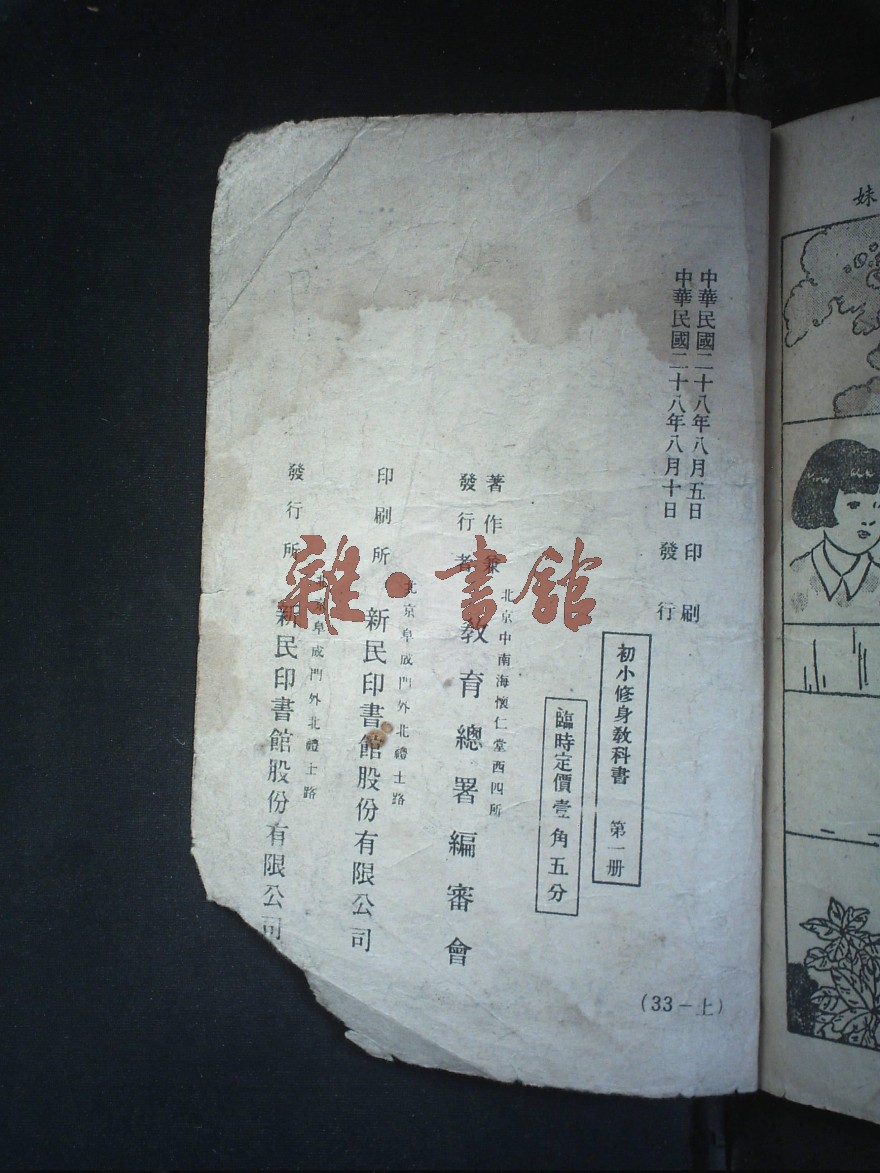 中華民國二十八年八月五日 印刷
中華民國二十八年八月十日 發行
初小修身教科書 第一册
臨時定價壹角五分
著作兼
發行者
北京中南海懷仁堂西四所
教育總署編審會
印刷所
北京阜成門外北禮士路
新民印書館股份有限公司
發行所
北京阜成門外北禮士路
新民印書館股份有限公司
(33－上)
雜·書館
妹